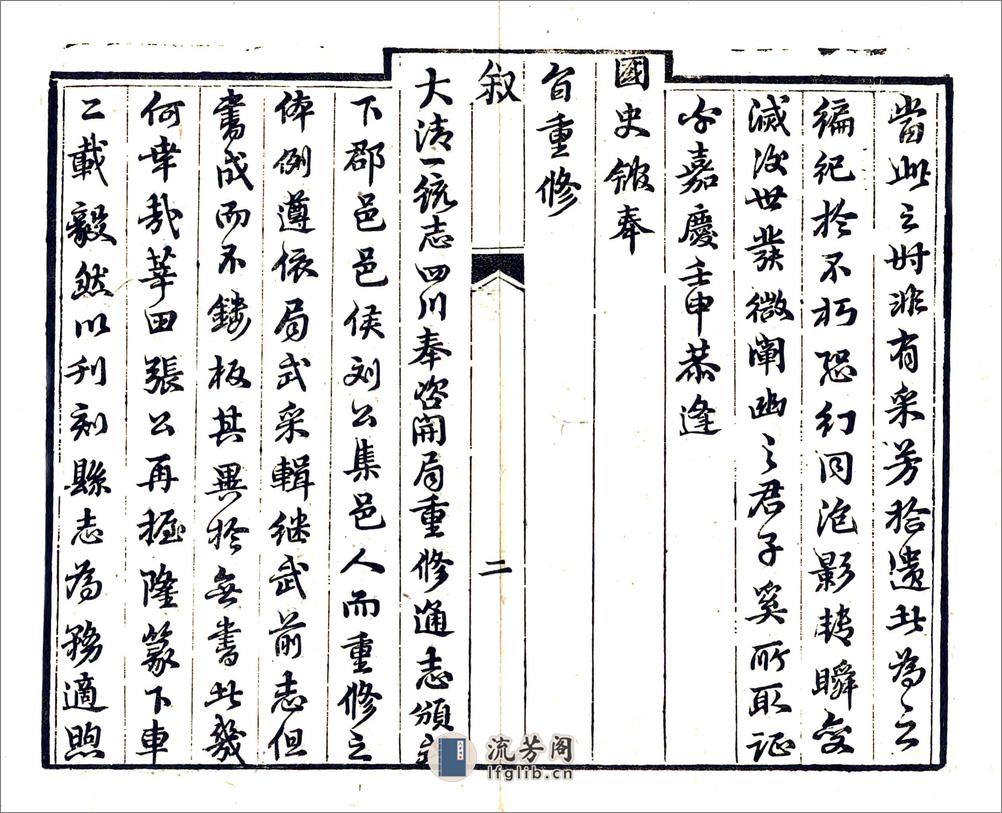 當此之时非有采芳拾遗者為之
编紀於不朽恐幻同泡影转瞬
滅没世發微阐幽之君子奚所取证
今嘉慶壬申恭逢
國史馆奉
旨重修
叙
二
大清一统志四川奉咨開局重修通志頒
下郡邑邑侯刘公集邑人而重修之
体例遵依局式采輯继武前志但
書成而不鏤板其異於无書者幾
何幸哉莘田張公再握隆篆下車
二載毅然以刊刻縣志為務適照
流芳阁
lfglib.cn